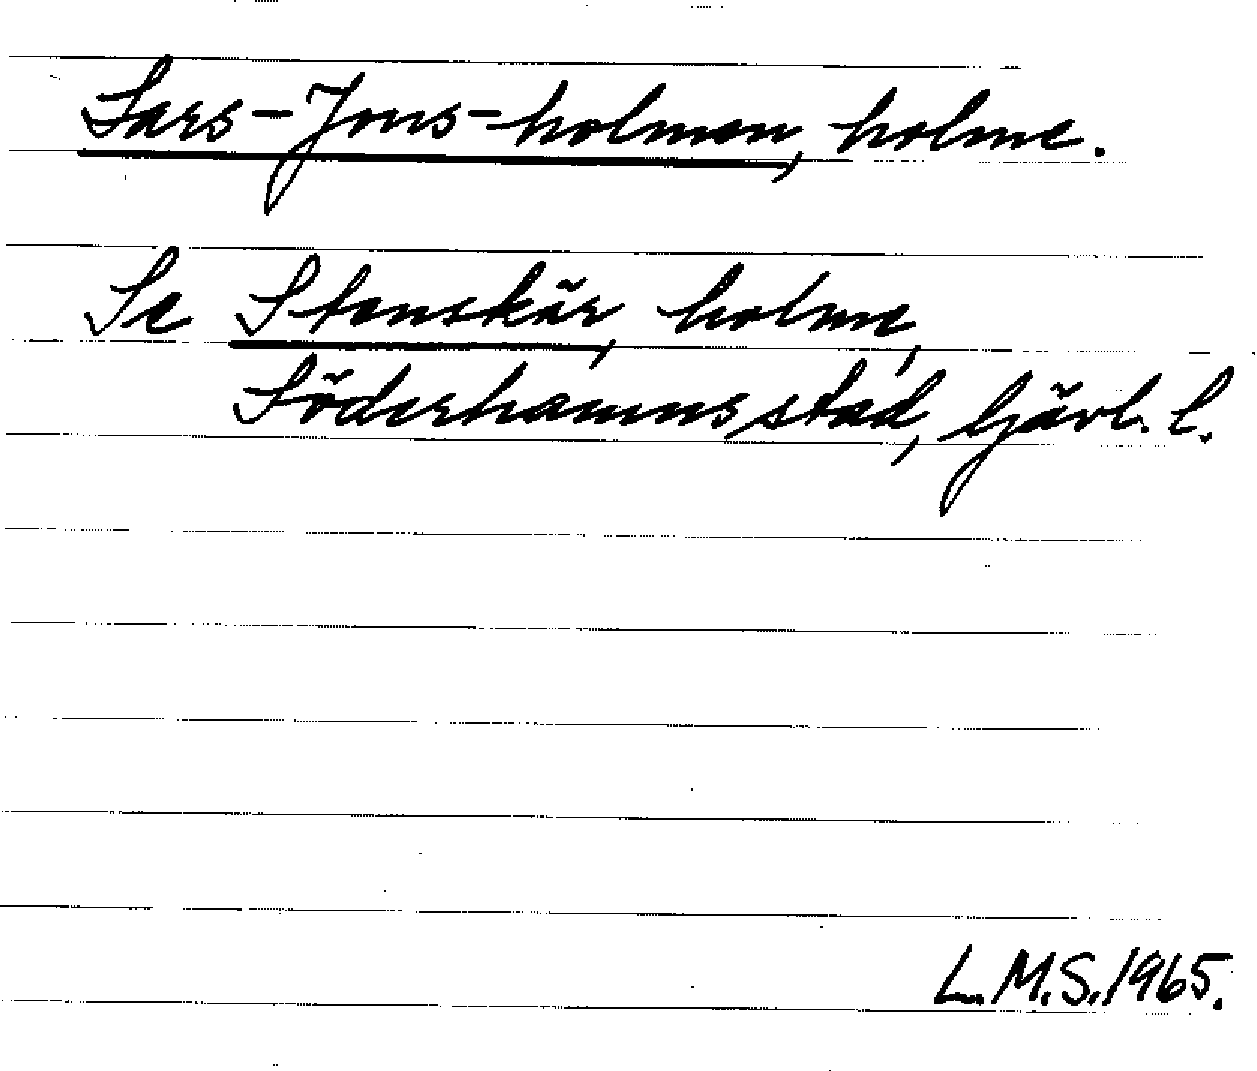 Lars-Jons-holmen, holme.
Se Stenskär, holme,
Söderhamns stad, Gävl. l.
L.M.S. 1965.